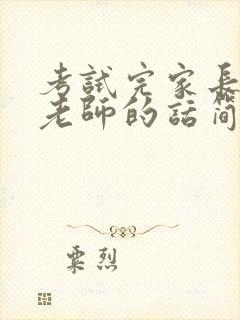 考試完家長
老師的話簡
粟烈